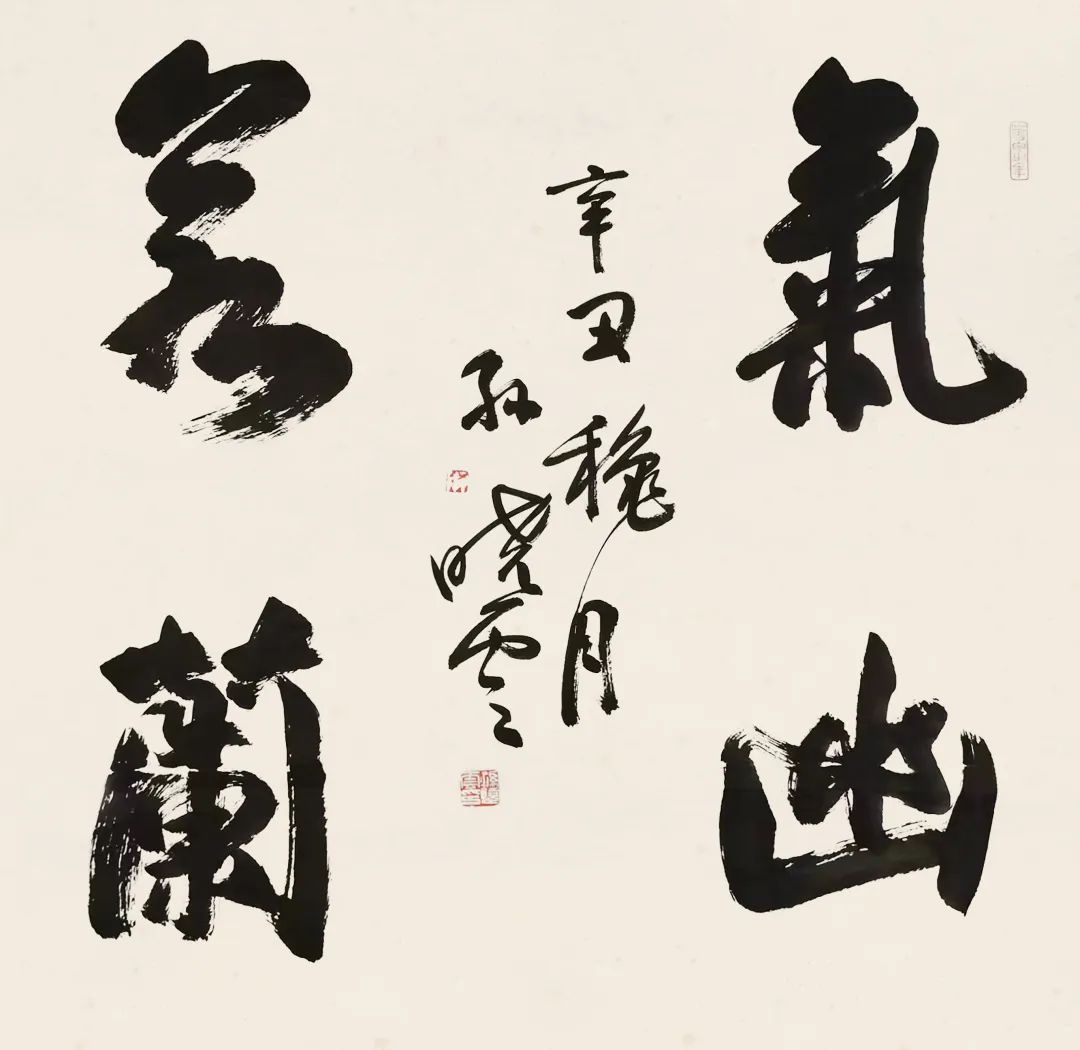 氣幽
若蘭
辛丑穐月
孫曉雲